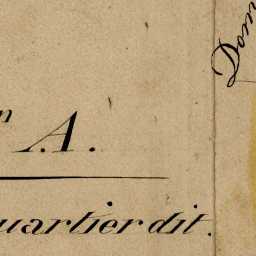 n
.A.
uartier dit.
Dom